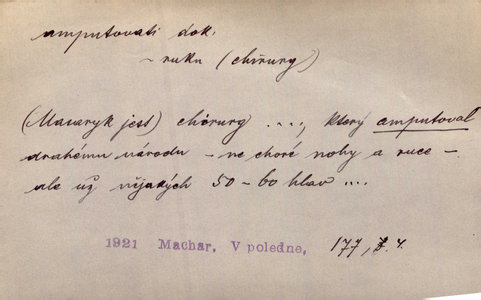 amputovati dok.
~ ruku (chirurg)
(Masaryk jest) chirurg ...., který amputoval
drahému národu – ne choré nohy a ruce –
ale už nějakých 50–60 hlav ....
1921 Machar, V poledne, 177, ř. 4.